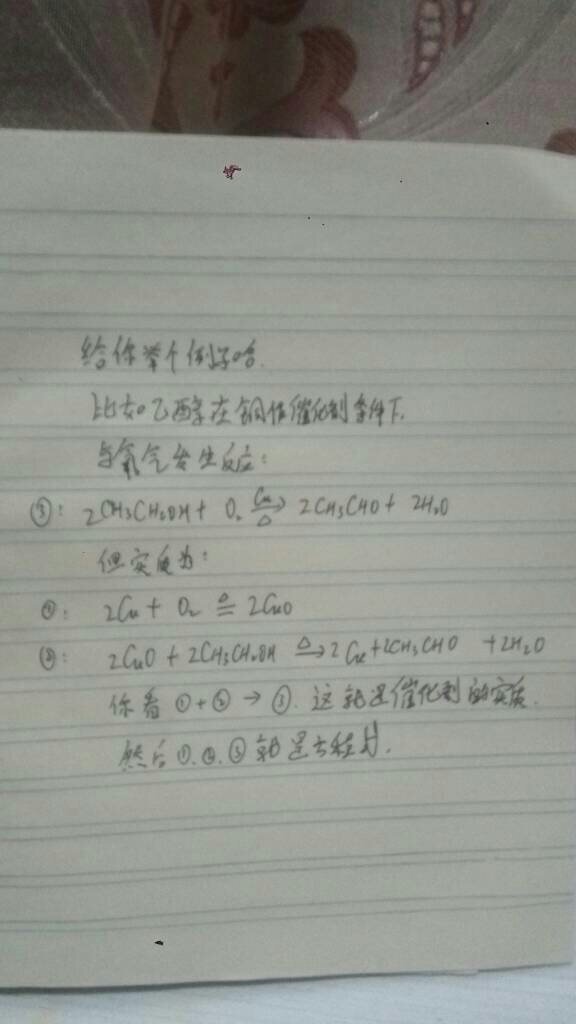 给你举个例子哈.
比如乙醇在铜作催化剂条件下.
与氧气发生反应:
③: 2CH3CH2OH + O2 Cu→△ 2CH3CHO + 2H2O
但实质为:
①: 2Cu + O2 △= 2CuO
②: 2CuO + 2CH3CH2OH △→ 2Cu + 2CH3CHO + 2H2O
你看①+②→③. 这就是催化剂的实质.
然后①.②.③就是方程式.